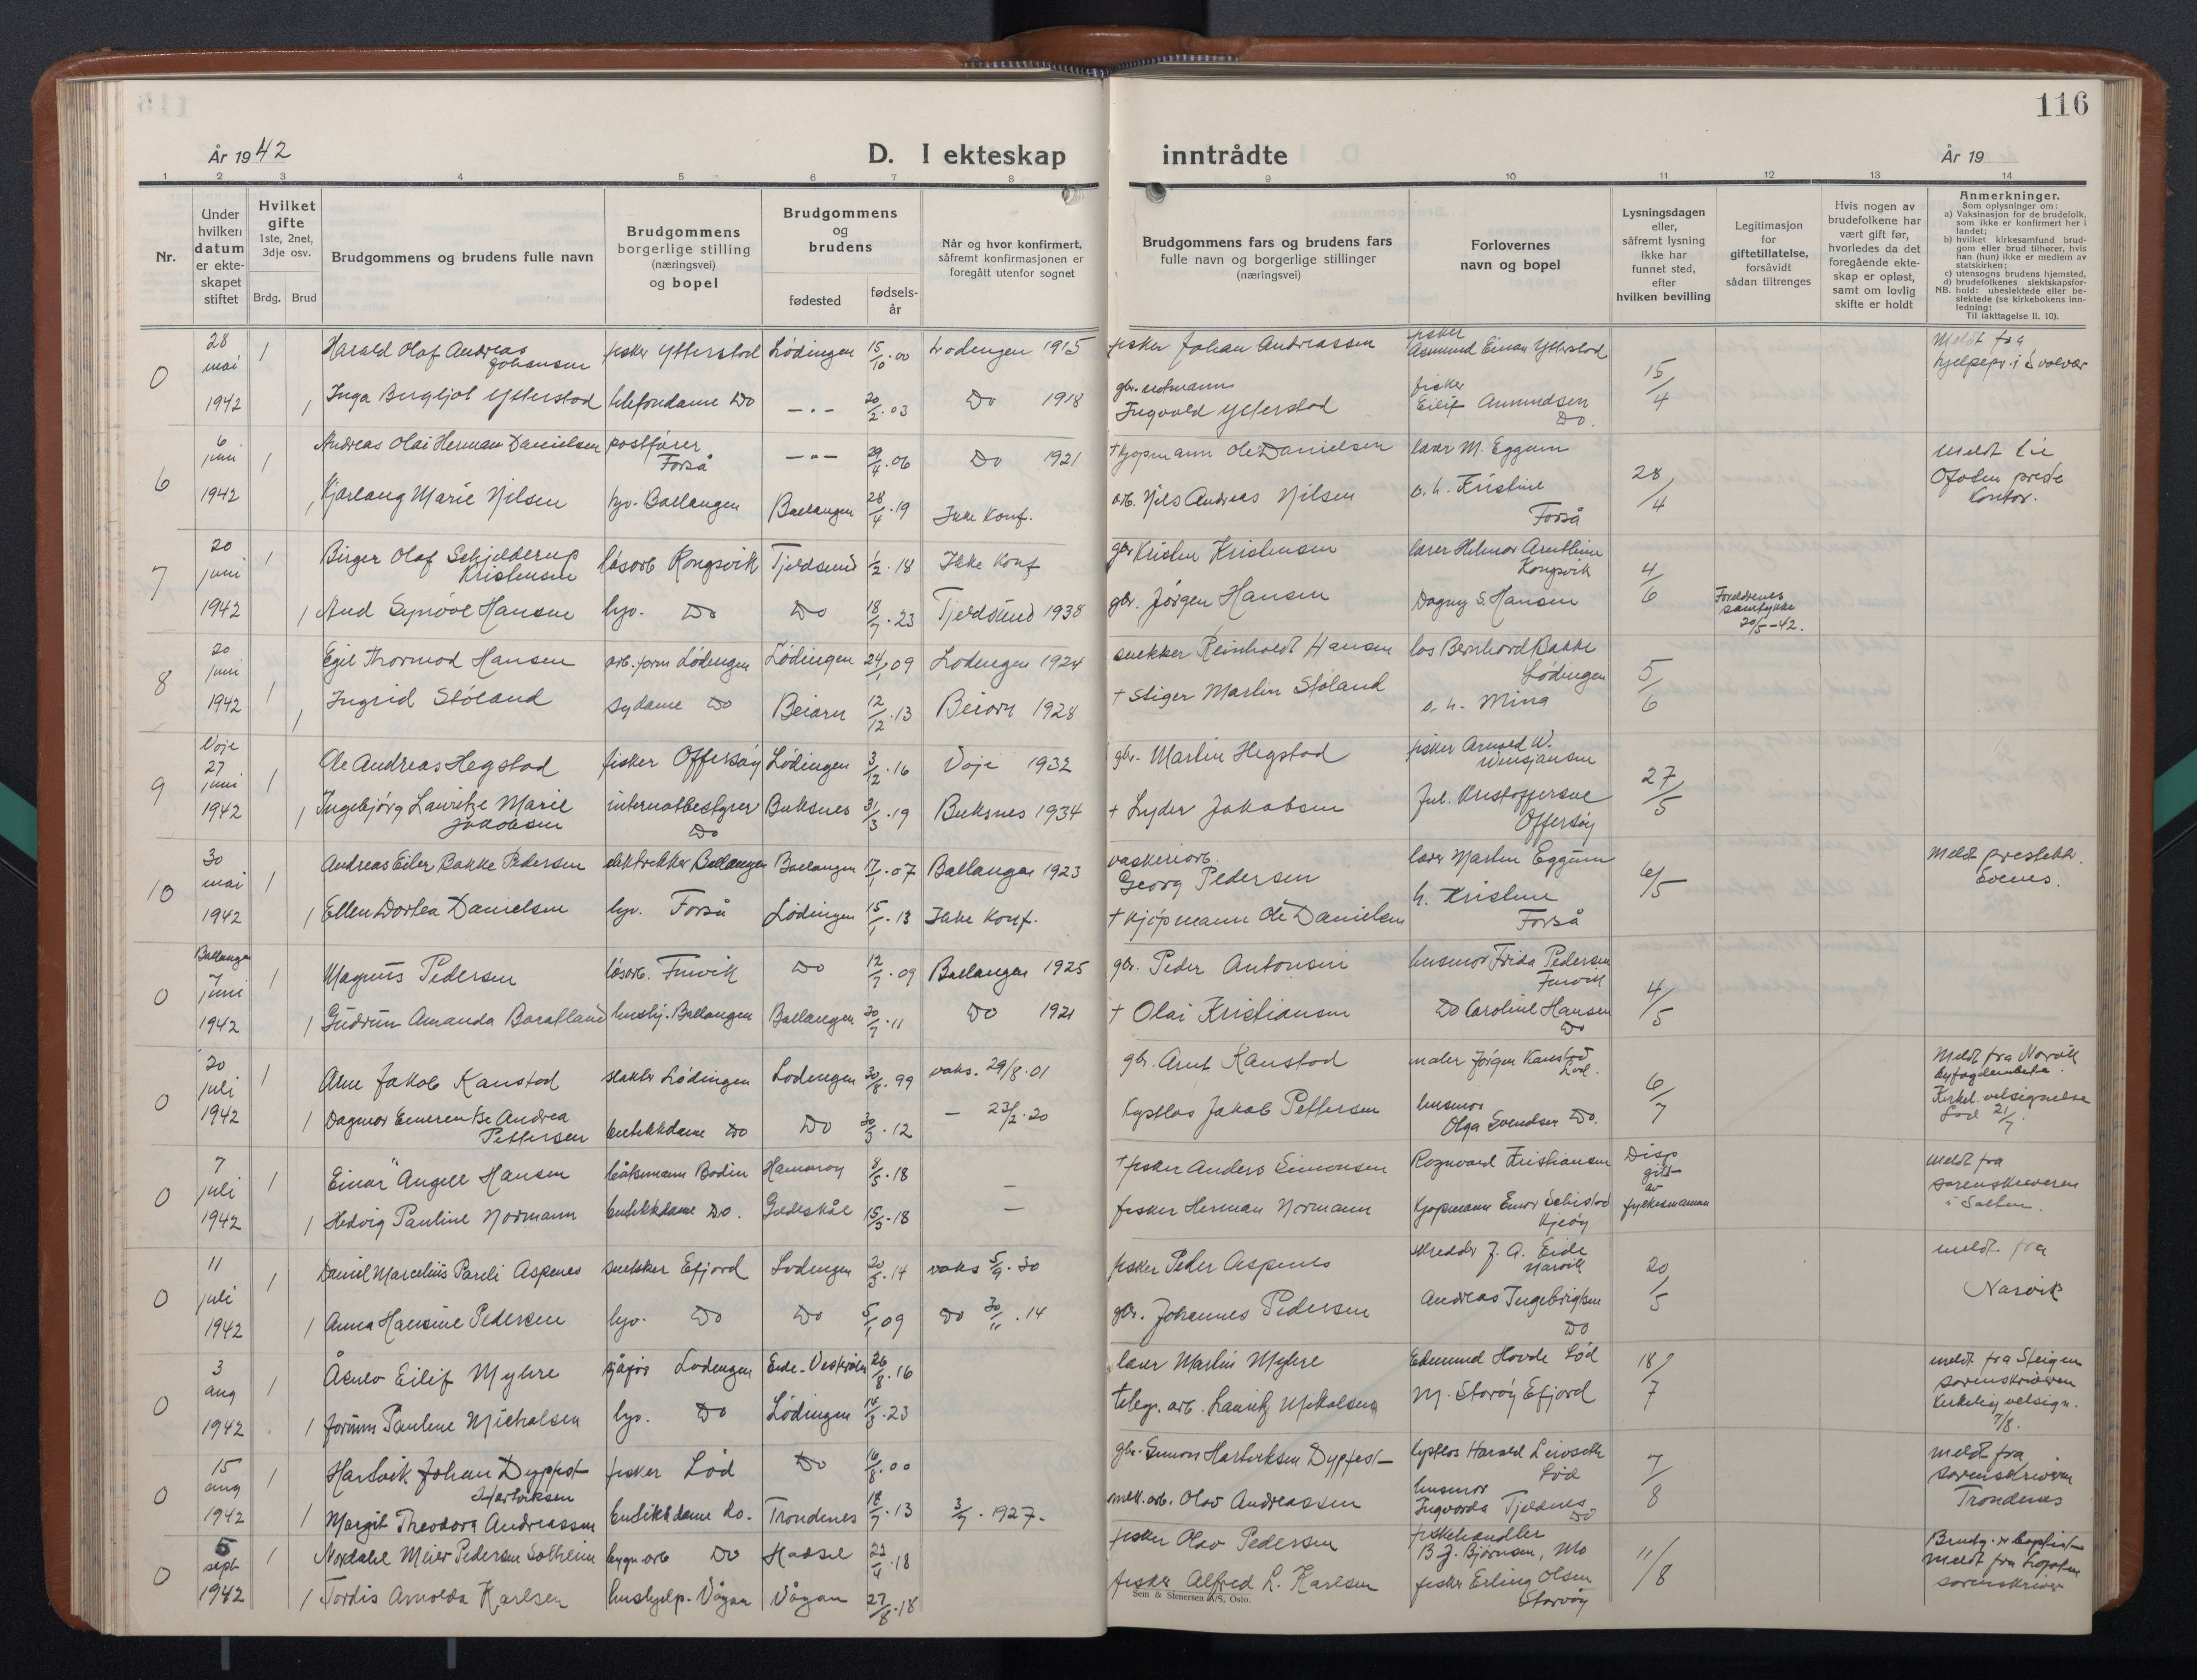 116
År 1942
D. I ekteskap inntrådte
År 19
1 2 3 4 5 6 7 8 9 10 11 12 13 14
Nr.
Under
hvilken
datum
er ekte-
skapet
stiftet
Hvilket
gifte
1ste, 2net,
3dje osv.
Brdg. Brud
Brudgommens og brudens fulle navn
Brudgommens
borgerlige stilling
(næringsvei)
og bopel
Brudgommens
og
brudens
fødested
fødsels-
år
Når og hvor konfirmert,
såfremt konfirmasjonen er
foregått utenfor sognet
Brudgommens fars og brudens fars
fulle navn og borgerlige stillinger
(næringsvei)
Forlovernes
navn og bopel
Lysningsdagen
eller,
såfremt lysning
ikke har
funnet sted,
efter
hvilken bevilling
Legitimasjon
for
giftetillatelse,
forsåvidt
sådan tiltrenges
Hvis nogen av
brudefolkene har
vært gift før,
hvorledes da det
foregående ekte-
skap er opløst,
samt om lovlig
skifte er holdt
Anmerkninger.
Som oplysninger om:
a) Vaksinasjon for de brudefolk,
som ikke er konfirmert her i
landet;
b) hvilket kirkesamfund brud-
gom eller brud tilhører, hvis
han (hun) ikke er medlem av
statskirken;
c) utensogns brudens hjemsted,
d) brudefolkenes slektskapsfor-
NB. hold: ubeslektede eller be-
slektede (se kirkebokens inn-
ledning:
Til iakttagelse II. 10).
0 28 mai 1942 1 Harald Olaf Andreas Johansen fisker Ytterstad Lödingen 15/10.00 Lødingen 1915 fisker Johan Andreassen fisker Asmund Einar Ytterstad 15/4 Meldt fra hjelpepr. i Svolvær
1 Inga Bergljot Ytterstad telefondame Do —"— 20/2.03 Do 1918 Ingvald Ytterstad fisker Eilif Amundsen Do.
6 6 juni 1942 1 Andreas Olai Herman Danielsen postfører Forså —"— 29/4.06 Do 1921 † kjøpmann Ole Danielsen lærer M. Eggum 28/4 meldt til Ofoten preste kontor.
1 Marie Nilsen hjv. Ballangen Ballangen 28/4.19 Ikke Konf. arb. Nils Andreas Nilsen o. h. Kristine Forså
7 20 juni 1942 1 Birger Olaf Schjelderup Kristensen løsarb Kongsvik Tjeldsund 1/2.18 Ikke Konf gbr Kristen Kristensen lærer Helmer Kongsvik 4/6
1 Aud Synnöve Hansen hjv. Do Do 18/7.23 Tjeldsund 1938 gbr. Jörgen Hansen Dagny S. Hansen Foreldrenes samtykke 20/5-42.
8 20 juni 1942 1 Egil Thormod Hansen arb. form Lödingen Lödingen 24/1 09 Lødingen 1924 snekker Reinholdt Hansen los Bernhard Bakke Lödingen 5/6
1 Ingrid Stöland sydame Do Beiarn 12/12.13 Beiarn 1928 † Stiger Martin Stöland o. h. Mina
9 Voje 27 juni 1942 1 Ole Andreas Hegstad fisker Offersöy Lödingen 3/12.16 Voje 1932 gbr. Martin Hegstad fisker Arnold W. 27/5
1 Ingebjörg Lauritze Marie Jakobsen internatbestyrer Do Buksnes 31/3.19 Buksnes 1934 † Lyder Jakobsen Jul. Kristoffersen Offersöy
10 30 mai 1942 1 Andreas Eiler Bakke Pedersen elektrikker Ballangen Ballangen 17/1.07 Ballangen 1923 vaskeriarb. Georg Pedersen lærer Martin Eggum 6/5 Meldt prestektr. Evenes.
1 Ellen Dortea Danielsen hjv. Forså Lödingen 15/1.13 Ikke Konf. † Kjöpmann Ole Danielsen h. Kristine Forså
0 Ballangen 7 juni 1942 1 Magnus Pedersen løsarb. Do 12/7.09 Ballangen 1925 gbr. Peder Antonsen husmor Frida Pedersen 4/5
1 Gudrun Amanda Baratland hushj. Ballangen Ballangen 30/7.11 Do 1921 † Olai Kristiansen Do Caroline Hansen Do
0 20 juli 1942 1 Alne Jakob Kanstad slakter Lödingen Lødingen 30/8.99 vaks. 29/8.01 gbr. Arnt Kanstad maler Jörgen Kanstad Lød. 6/7 Meldt fra Narvik byfogdembete. Kirkel. velsignelse Lød 21/7.
1 Dagmar Emerentse Andrea Pettersen butikkdame Do Do 30/3.12 — 23/2.20 Kystlos Jakob Pettersen husmor Olga Svendsen Do.
0 7 juli 1942 1 Einar Angell Hansen båtsmann Bodin Hamarøy 8/5.18 — † fisker Anders Simonsen Ragnvard Kristiansen Disp gitt av fylkesmannen meldt fra sorenskriveren i Salten.
1 Hedvig Pauline Normann butikkdame Do. Gildeskål 15/5.18 — fisker Herman Normann Kjøpmann Kjeöy
0 11 juli 1942 1 Daniel Marcelius Pareli Aspenes snekker Efjord Lødingen 20/3.14 vaks 5/9.30 fisker Peder Aspenes skredder J. A. Eide Narvik 20/5 meldt fra Narvik
1 Anna Hansine Pedersen hjv. Do Do 5/1 09 Do 30/11.14 gbr. Johannes Pedersen Andreas Ingebrigtsen Do
0 3 aug 1942 1 Åsulv Eilif Myhre sjåfør Lødingen 26/8.16 lærer Martin Myhre Edmund Hovde Lød 18/7 meldt fra Steigen sorenskriveren Kirkelig velsign. 7/8.
1 Jorunn Pauline Nicholsen hjv. Do Lödingen 14/3.23 telegr. arb. Lauritz Nikolsen M. Storöy Efjord
0 15 aug 1942 1 Hartvik Johan Dypfest Hartviksen fisker Lød Do 16/8.00 gbr. Simon Hartviksen Dypfest kystlos Harald Leivseth Lød 7/8 meldt fra sorenskriveren Trondenes
1 Margit Theodora Andreassen butikkdame do. Trondenes 18/7.13 3/7.1927. mek. arb. Olav Andreassen husmor Ingvarda Tjeldnes Do
0 5 sept 1942 1 Nordahl Meier Pedersen Solheim bygn.arb Do Hadsel 22/4.18 fisker Olav Pedersen fiskehandler B. J. Björnsen, Mo 11/8 Brudg. er baptist meldt fra Lofoten sorenskriver
1 Tordis Arnolda Karlsen hushjelp. Vågan Vågan 27/8.18 fisker Alfred L. Karlsen fisker Erling Olsen Storvåg
Sem & Stenersen A/S, Oslo.